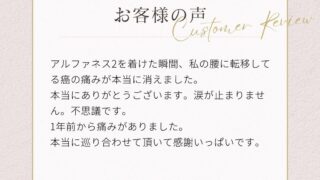 お客様の声
Customer Review
アルファネス2を着けた瞬間、私の腰に転移して
る癌の痛みが本当に消えました。
本当にありがとうございます。涙が止まりませ
ん。不思議です。
1年前から痛みがありました。
本当に巡り合わせて頂いて感謝いっぱいです。